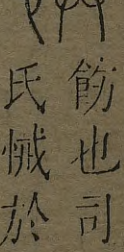 飭也司
氏悈於